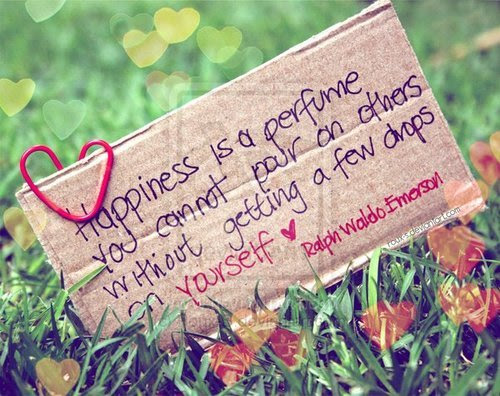 Happiness is a perfume
you cannot pour on others
without getting a few drops
on yourself
Ralph Waldo Emerson